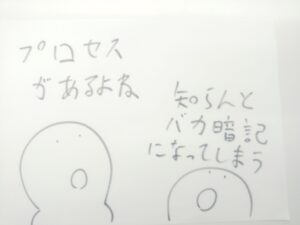 プロセス
があるよね
知らんと
バカ暗記
になってしまう